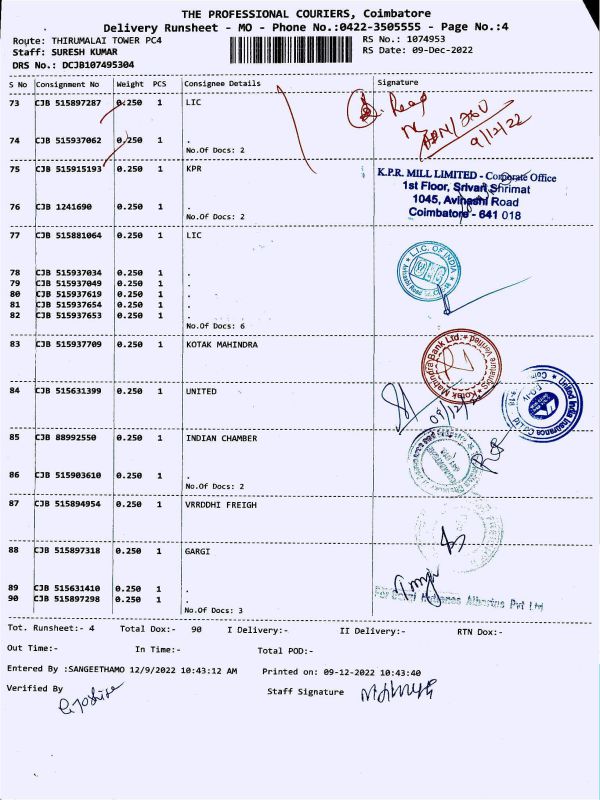 THE PROFESSIONAL COURIERS, Coimbatore
Delivery Runsheet - MO - Phone No.:0422-3505555 - Page No.:4
Route: THIRUMALAI TOWER PC4 RS No.: 1074953
Staff: SURESH KUMAR RS Date: 09-Dec-2022
DRS No.: DCJB107495304
S No Consignment No Weight PCS Consignee Details Signature
73 CJB 515897287 0.250 1 LIC
9/12/22
74 CJB 515937062 0.250 1 .
No.Of Docs: 2
75 CJB 515915193 0.250 1 KPR
K.P.R. MILL LIMITED - Corporate Office
1st Floor, Srivari Shrimat
1045, Avinashi Road
Coimbatore - 641 018
76 CJB 1241690 0.250 1 .
No.Of Docs: 2
77 CJB 515881064 0.250 1 LIC
L.I.C. OF INDIA
78 CJB 515937034 0.250 1 .
79 CJB 515937049 0.250 1 .
80 CJB 515937619 0.250 1 .
81 CJB 515937654 0.250 1 .
82 CJB 515937653 0.250 1 .
No.Of Docs: 6
83 CJB 515937709 0.250 1 KOTAK MAHINDRA
Kotak Mahindra Bank Ltd. Signature Verified
84 CJB 515631399 0.250 1 UNITED
United India Insurance Co Ltd
85 CJB 88992550 0.250 1 INDIAN CHAMBER
86 CJB 515903610 0.250 1 .
No.Of Docs: 2
87 CJB 515894954 0.250 1 VRRDDHI FREIGH
88 CJB 515897318 0.250 1 GARGI
89 CJB 515631410 0.250 1 .
90 CJB 515897298 0.250 1 .
Pvt Ltd
No.Of Docs: 3
Tot. Runsheet:- 4 Total Dox:- 90 I Delivery:- II Delivery:- RTN Dox:-
Out Time:- In Time:- Total POD:-
Entered By :SANGEETHAMO 12/9/2022 10:43:12 AM Printed on :09-12-2022 10:43:40
Verified By Staff Signature